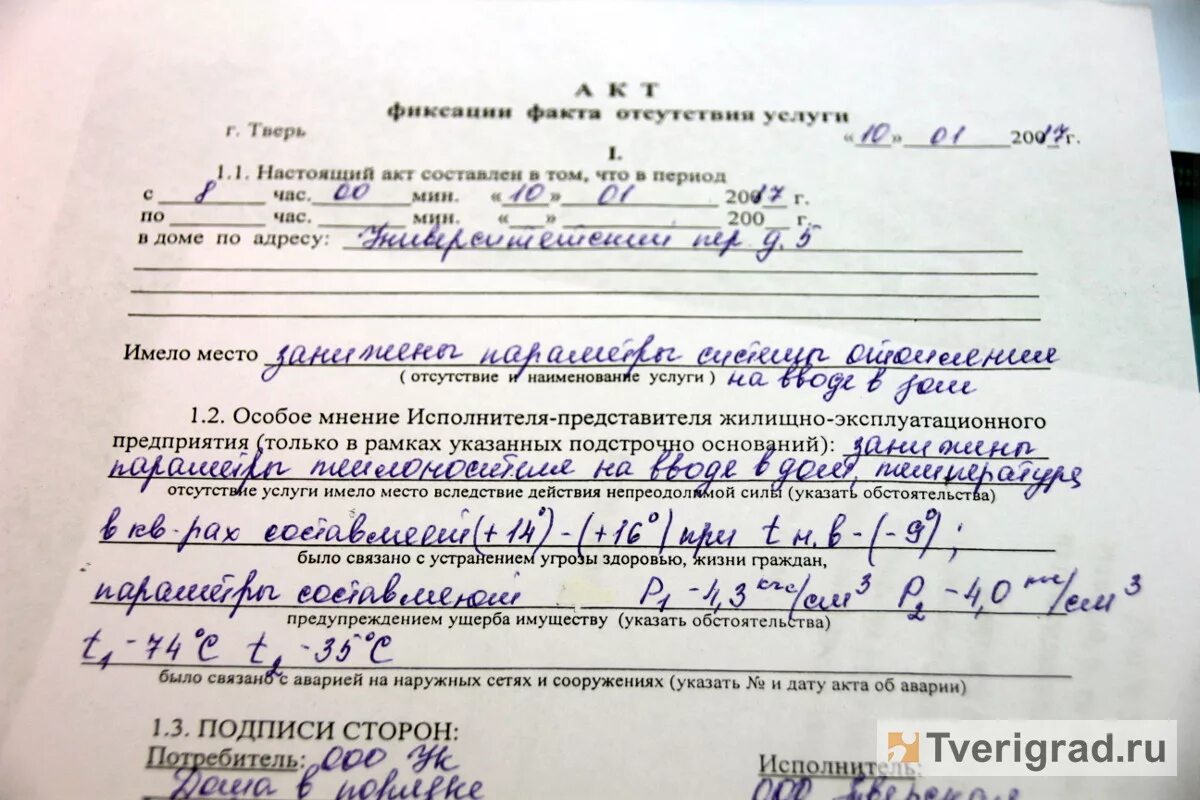 АКТ
фиксации факта отсутствия услуги
г. Тверь «10» 01 2017г.
I.
1.1. Настоящий акт составлен в том, что в период
с 8 час. 00 мин. «10» 01 2017 г.
по час. мин. « » 200 г.
в доме по адресу: Университетский пер д. 5
Имело место занижены параметры системы отопления
( отсутствие и наименование услуги ) на вводе в дом
1.2. Особое мнение Исполнителя-представителя жилищно-эксплуатационного
предприятия (только в рамках указанных подстрочно оснований): занижены
параметры теплоносителя на вводе в дом, температура
отсутствие услуги имело место вследствие действия непреодолимой силы (указать обстоятельства)
в кв-рах составляет (+14°) - (+16°) при t н.в - (-9°) ;
было связано с устранением угрозы здоровью, жизни граждан,
параметры составляют P1 - 4,3 кгс/см3 P2 - 4,0 кгс/см3
предупреждением ущерба имуществу (указать обстоятельства)
t1 - 74°C t2 - 35°C
было связано с аварией на наружных сетях и сооружениях (указать № и дату акта об аварии)
1.3. ПОДПИСИ СТОРОН:
Потребитель: ООО УК Исполнитель:
Дома в порядке ООО Тверская
Tverigrad.ru